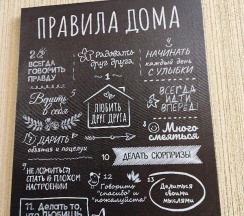 ПРАВИЛА ДОМА
2
ВСЕГДА
ГОВОРИТЬ
ПРАВДУ
РАДОВАТЬ
друг друга
4
НАЧИНАТЬ
каждый день
С УЛЫБКИ
1
ЛЮБИТЬ
ДРУГ ДРУГА
Верить в
себя
ВСЕГДА
ИДТИ
ВПЕРЁД
7 ДАРИТЬ
объятия и поцелуи
8 Много
смеяться
10 ДЕЛАТЬ СЮРПРИЗЫ
9
НЕ ЛОЖИТЬСЯ
СПАТЬ В ПЛОХОМ
НАСТРОЕНИИ
12
Говорить
"спасибо" и
"пожалуйста"
13
Делиться
своими
мыслями
11. Делать то,
что любишь